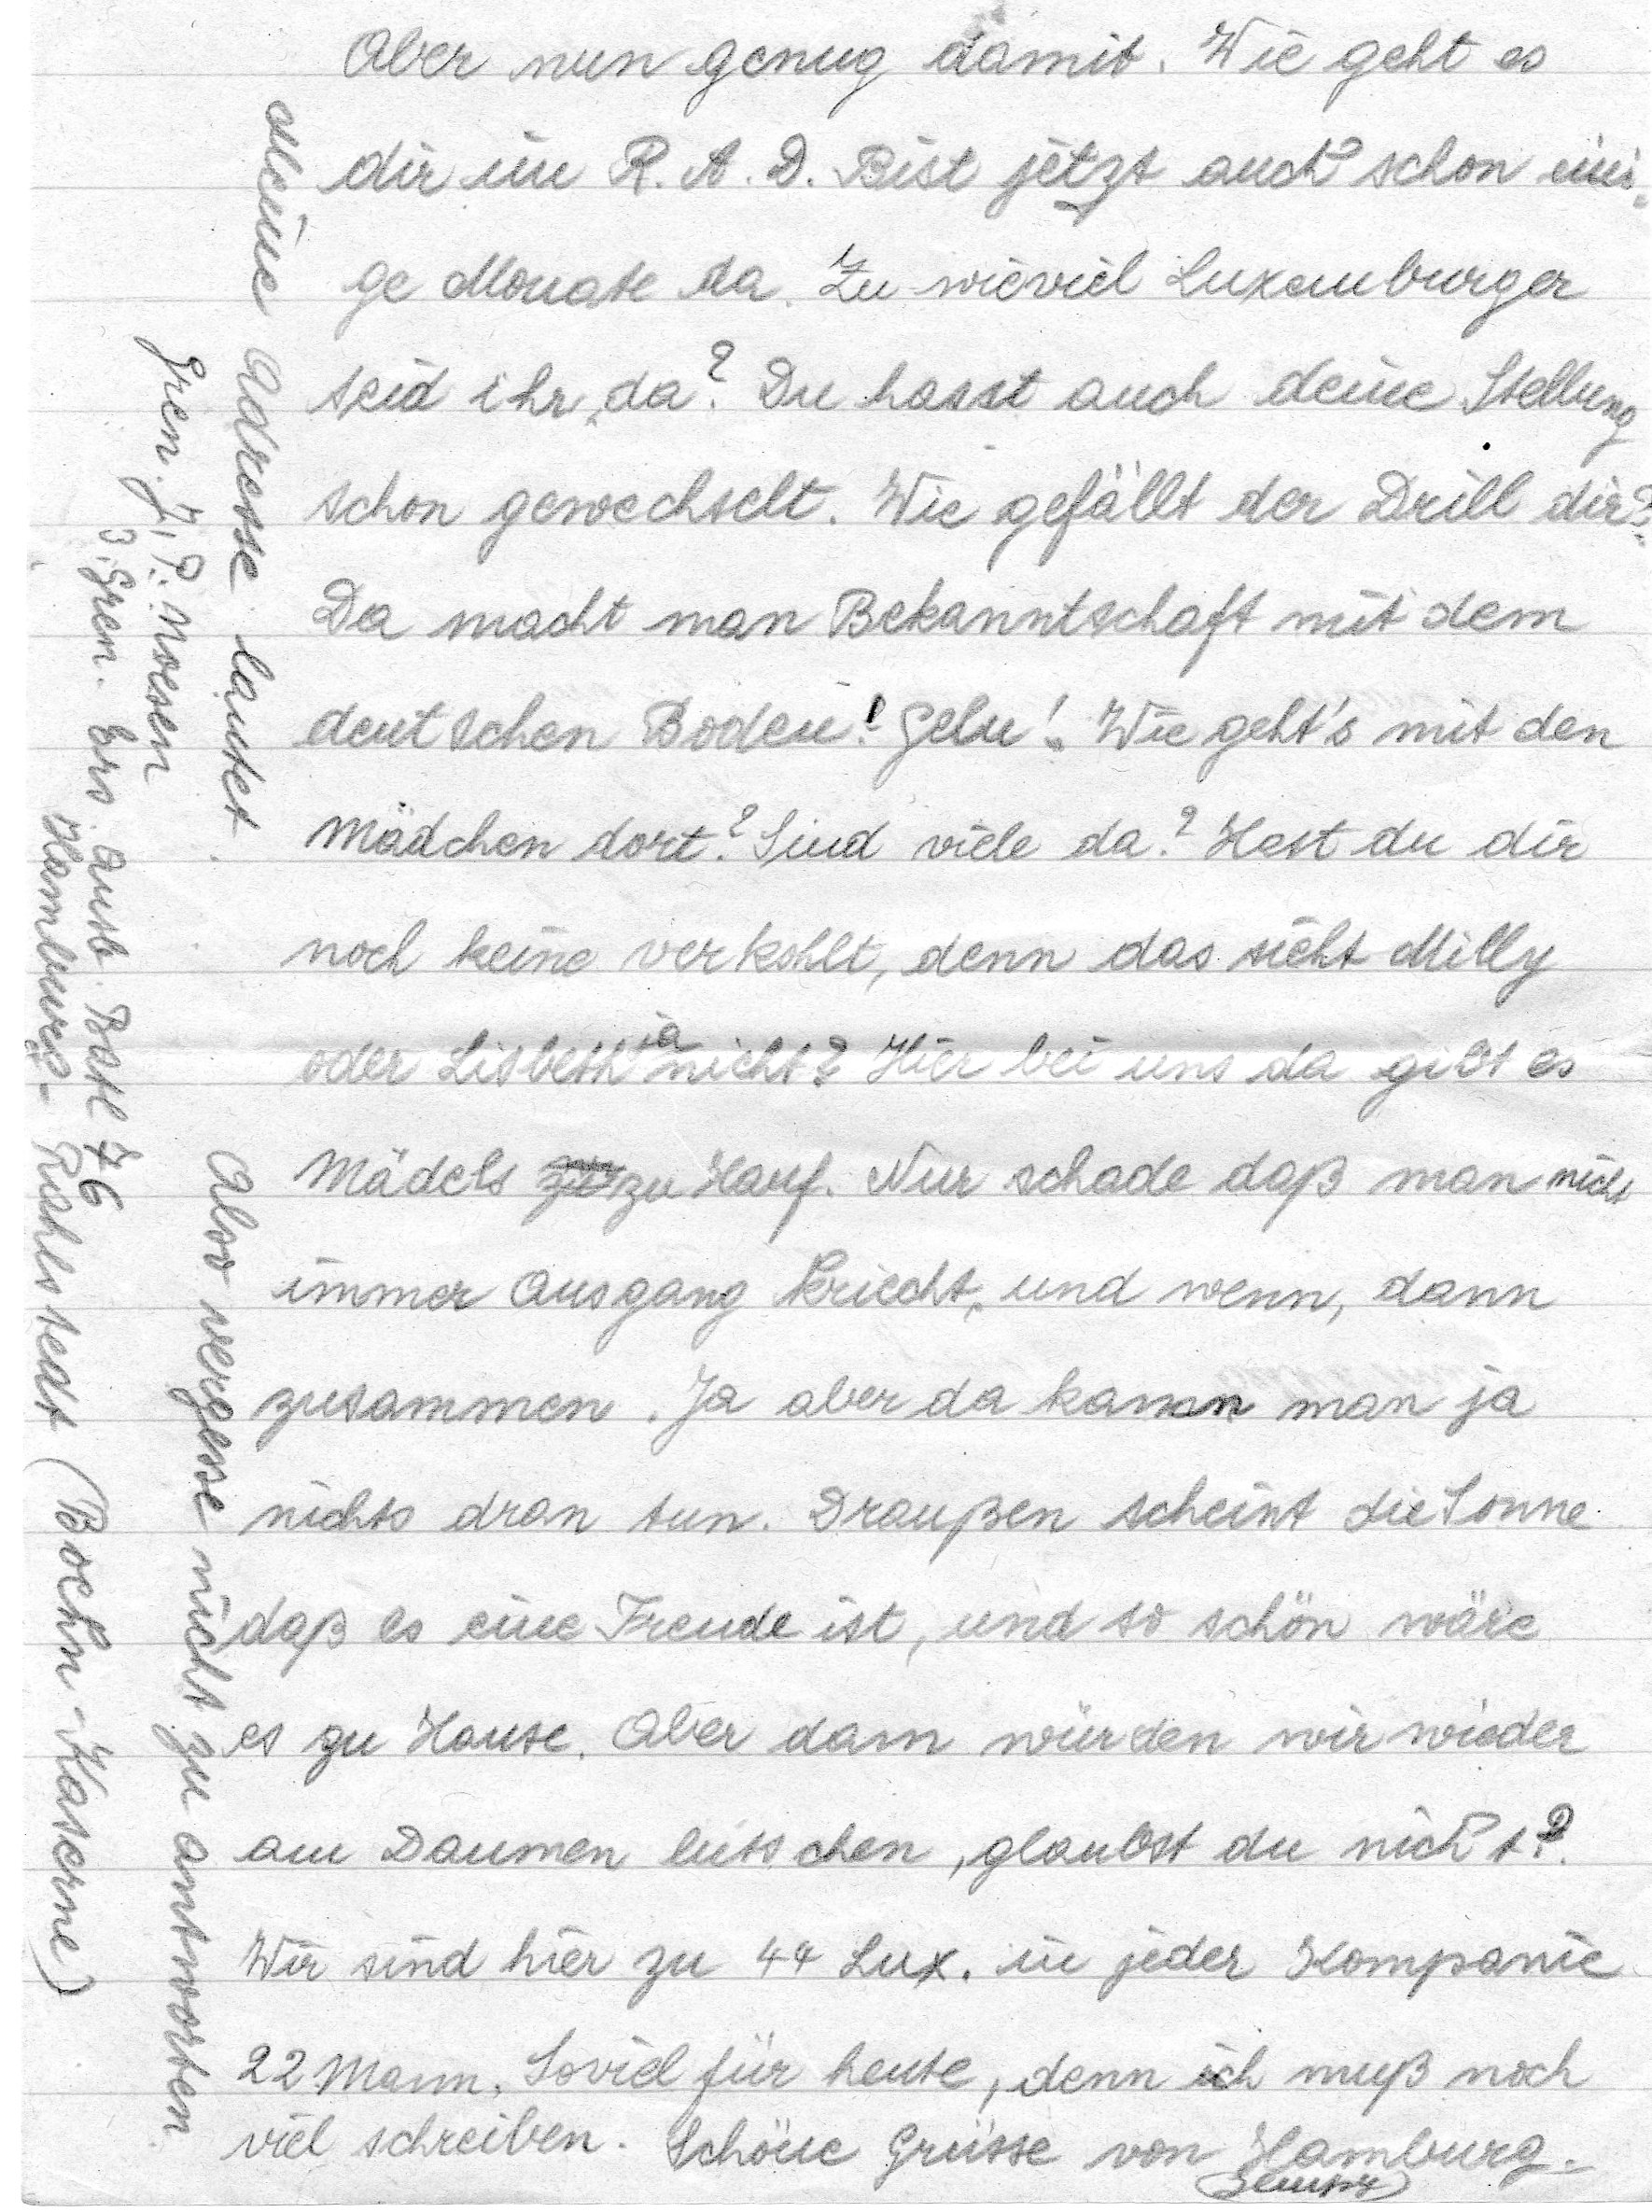 Aber nun genug damit. Wie geht es
dir im R. A. D. Bist jetzt auch schon eini-
ge Monate da. Zu wieviel Luxemburger
seid ihr da? Du hasst auch deine Stellung
schon gewechselt. Wie gefällt der Drill dir?
Da macht man Bekanntschaft mit dem
deutschen Boden! Gelu! Wie geht's mit den
Mädchen dort? Sind viele da? Hast du dir
noch keine verkohlt, denn das sieht Milly
oder Lisbeth ja nicht? Hier bei uns da gibt es
Mädels zu Hauf. Nur schade daß man nicht
immer Ausgang kriecht, und wenn, dann
zusammen. Ja aber da kann man ja
nichts dran tun. Draußen scheint die Sonne
daß es eine Freude ist, und so schön wäre
es zu Hause. Aber dann würden wir wieder
am Daumen lutschen, glaubst du nicht?
Wir sind hier zu 44 Lux. in jeder Kompanie
22 Mann. Soviel für heute, denn ich muß noch
viel schreiben. Schöne Grüsse von Hamburg.
Meine Adresse lautet.
Gren. J. P. Moesen
3. Gren. Ers. Ausb. Batl 76
Hamburg - Rahlstedt (Boehn-Kaserne)
Also vergesse nicht zu antworten